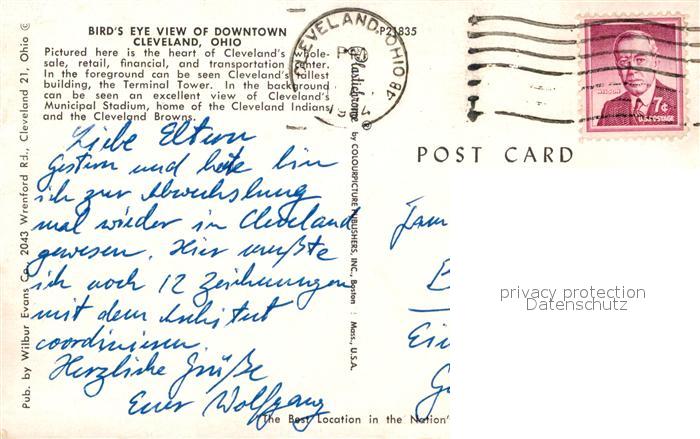 BIRD'S EYE VIEW OF DOWNTOWN
CLEVELAND, OHIO
Pictured here is the heart of Cleveland's whole-
sale, retail, financial, and transportation center.
In the foreground can be seen Cleveland's tallest
building, the Terminal Tower. In the background
can be seen an excellent view of Cleveland's
Municipal Stadium, home of the Cleveland Indians
and the Cleveland Browns.
Liebe Eltern
Gestern und heute bin
ich zur Abwechslung
mal wieder in Cleveland
gewesen. Hier mußte
ich noch 12 Zeichnungen
mit dem Architekt
coordinieren.
Herzliche Grüße
Euer Wolfgang
Pub. by Wilbur Evans Co. 2043 Wrenford Rd., Cleveland 21, Ohio ©
P21835
Plastichrome ®
by COLOURPICTURE PUBLISHERS, INC., Boston : Mass., U.S.A.
CLEVELAND, OHIO
WILSON
7¢
U.S. POSTAGE
POST CARD
Fam
B
Ei
G
privacy protection
Datenschutz
"The Best Location in the Nation"